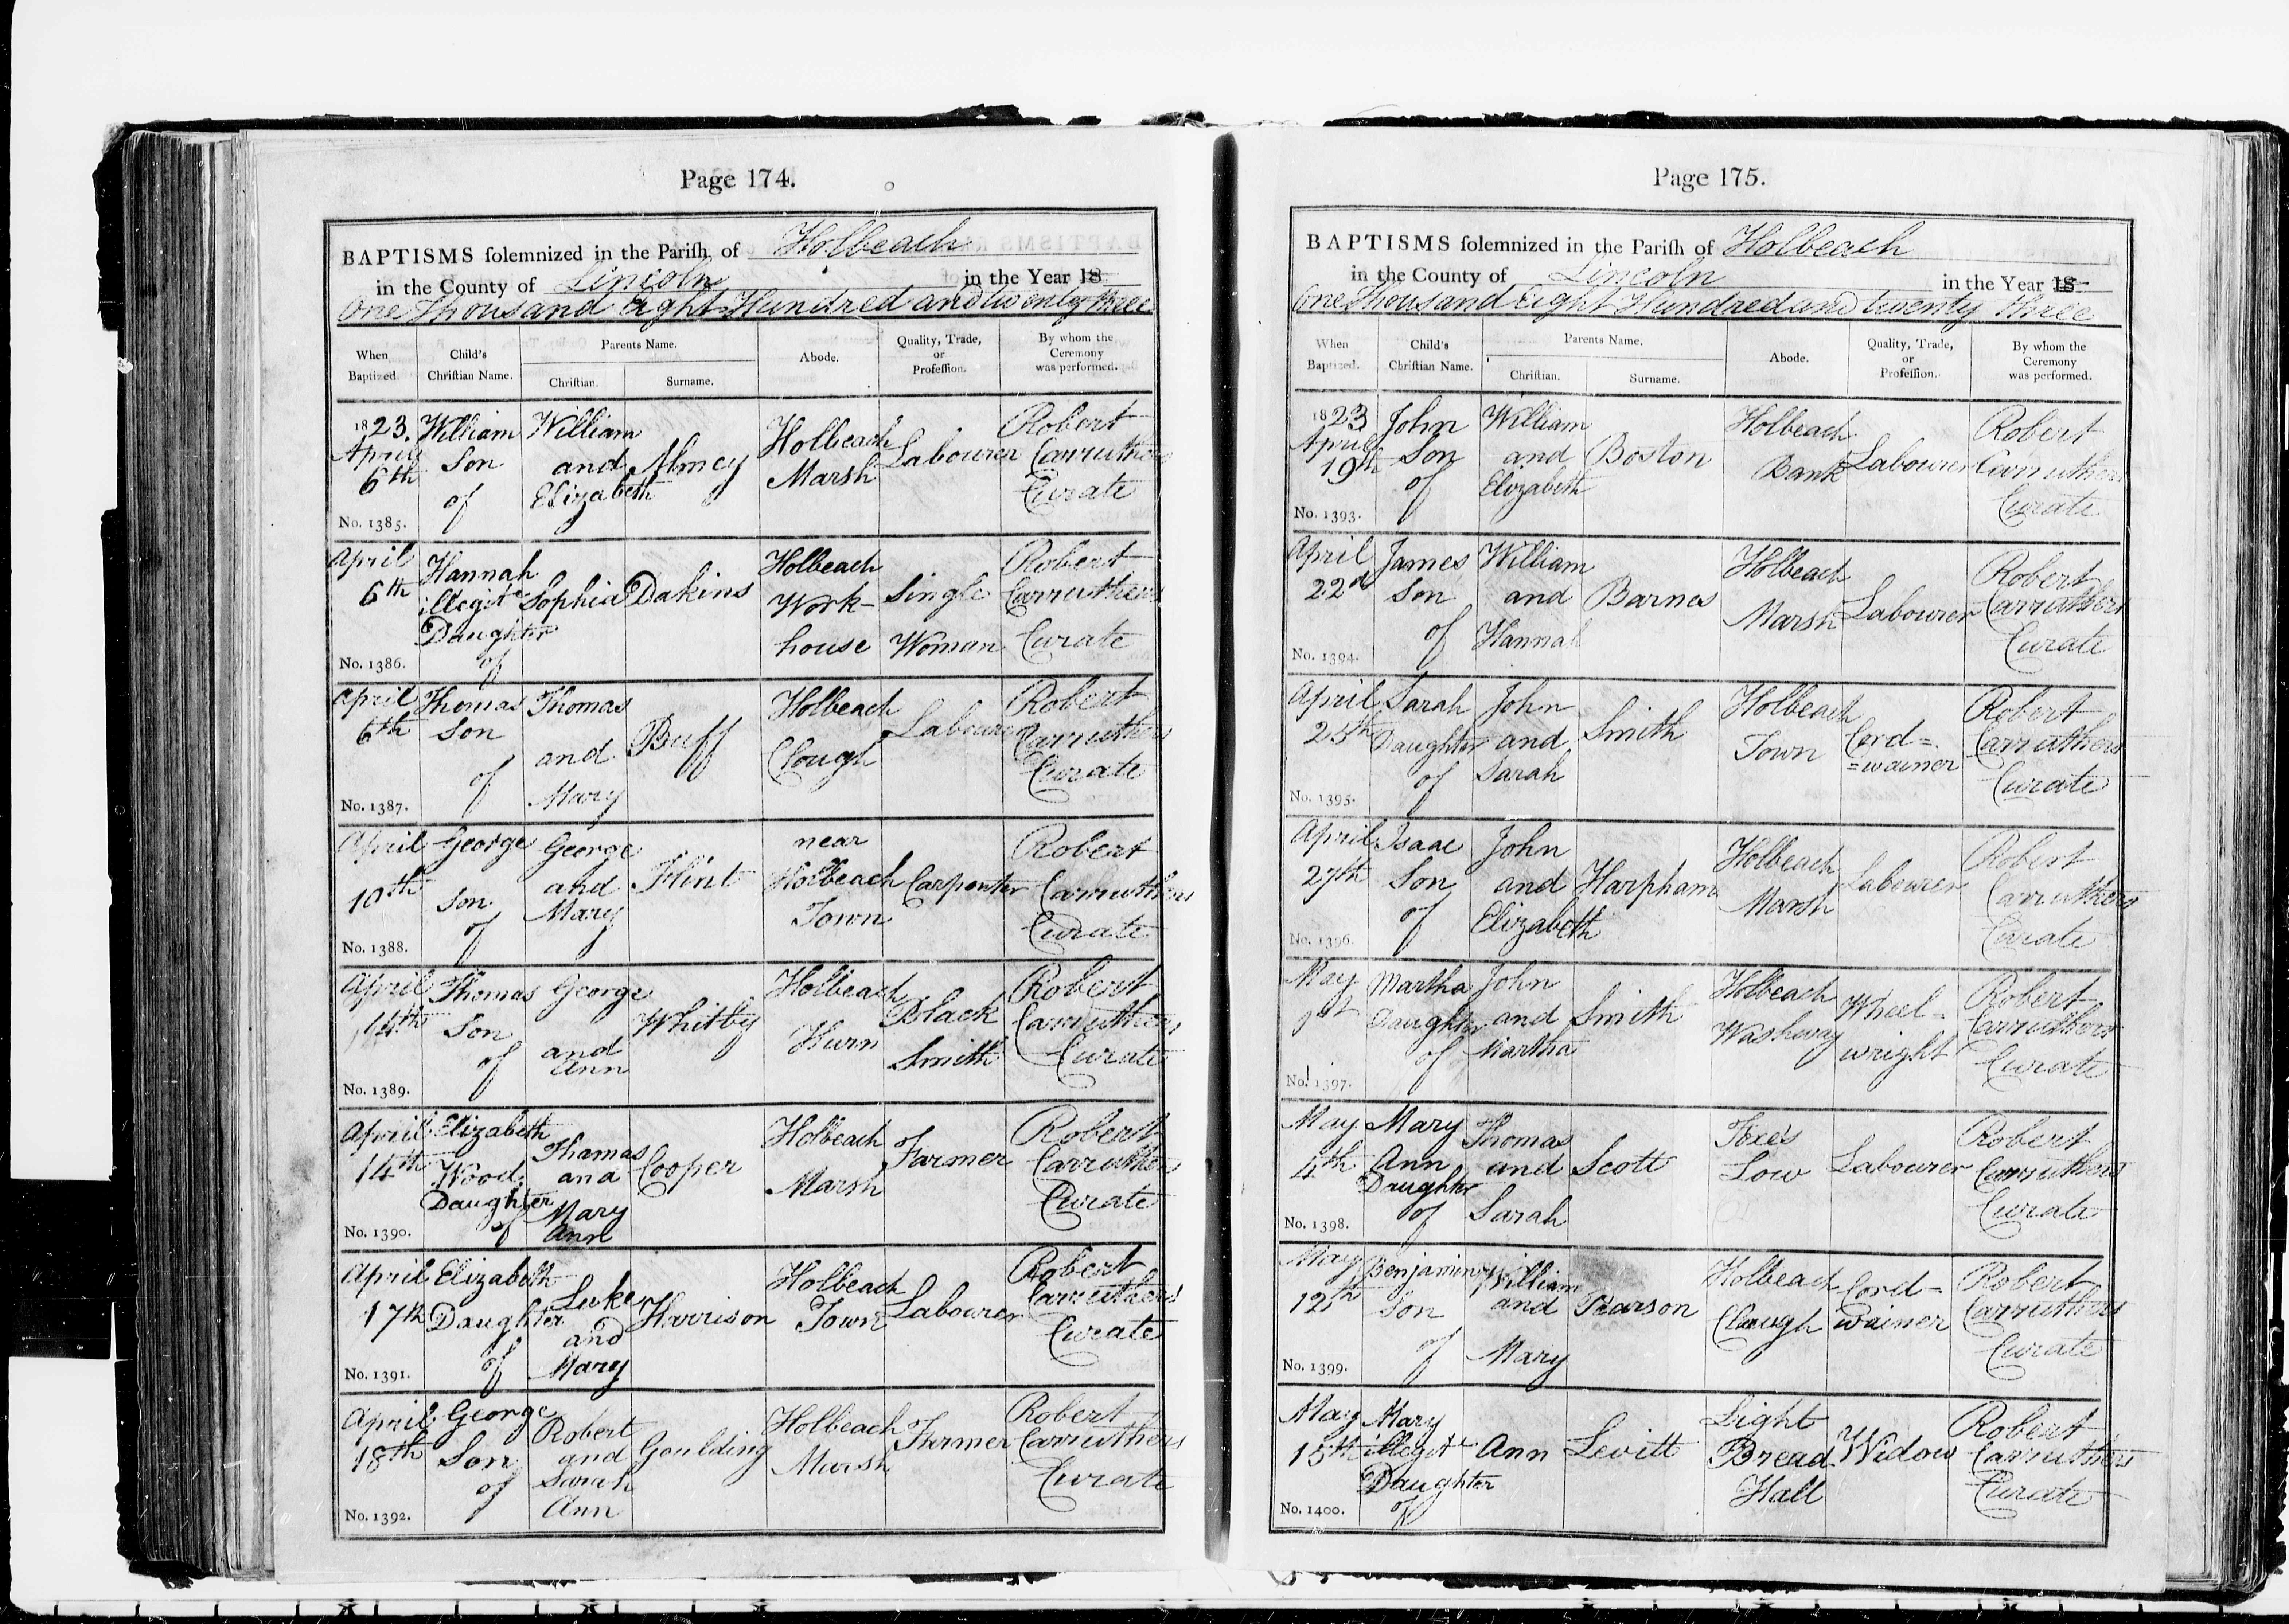 Page 174.
BAPTISMS solemnized in the Parish of Holbeach
in the County of Lincoln in the Year 18
One Thousand Eight Hundred and twenty three
When Baptized. Child's Christian Name. Parents Name. Christian. Surname. Abode. Quality, Trade, or Profession. By whom the Ceremony was performed.
1823. April 6th No. 1385. William Son of William and Elizabeth Almey Holbeach Marsh Labourer Robert Carruthers Curate
April 6th No. 1386. Hannah illegite Daughter of Sophia Dakins Holbeach Work-house Single Woman Robert Carruthers Curate
April 6th No. 1387. Thomas Son of Thomas and Mary Buff Holbeach Clough Labourer Robert Carruthers Curate
April 10th No. 1388. George Son of George and Mary Flint near Holbeach Town Carpenter Robert Carruthers Curate
April 14th No. 1389. Thomas Son of George and Ann Whitby Holbeach Hurn Black Smith Robert Carruthers Curate
April 14th No. 1390. Elizabeth Wood Daughter of Thomas and Mary Ann Cooper Holbeach Marsh Farmer Robert Carruthers Curate
April 17th No. 1391. Elizabeth Daughter of Luke and Mary Harrison Holbeach Town Labourer Robert Carruthers Curate
April 18th No. 1392. George Son of Robert and Sarah Ann Goulding Holbeach Marsh Farmer Robert Carruthers Curate
Page 175.
BAPTISMS solemnized in the Parish of Holbeach
in the County of Lincoln in the Year 18
One Thousand Eight Hundred and twenty three
When Baptized. Child's Christian Name. Parents Name. Christian. Surname. Abode. Quality, Trade, or Profession. By whom the Ceremony was performed.
1823 April 19th No. 1393. John Son of William and Elizabeth Boston Holbeach Bank Labourer Robert Carruthers Curate
April 22d No. 1394. James Son of William and Hannah Barnes Holbeach Marsh Labourer Robert Carruthers Curate
April 25th No. 1395. Sarah Daughter of John and Sarah Smith Holbeach Town Cord==wainer Robert Carruthers Curate
April 27th No. 1396. Isaac Son of John and Elizabeth Harpham Holbeach Marsh Labourer Robert Carruthers Curate
May 1st No. 1397. Martha Daughter of John and Martha Smith Holbeach Washway Wheel-wright Robert Carruthers Curate
May 4th No. 1398. Mary Ann Daughter of Thomas and Sarah Scott Foxe's Low Labourer Robert Carruthers Curate
May 12th No. 1399. Benjamin Son of William and Mary Pearson Holbeach Clough Cord-wainer Robert Carruthers Curate
May 15th No. 1400. Mary illegite Daughter of Ann Levitt Light Bread Hall Widow Robert Carruthers Curate